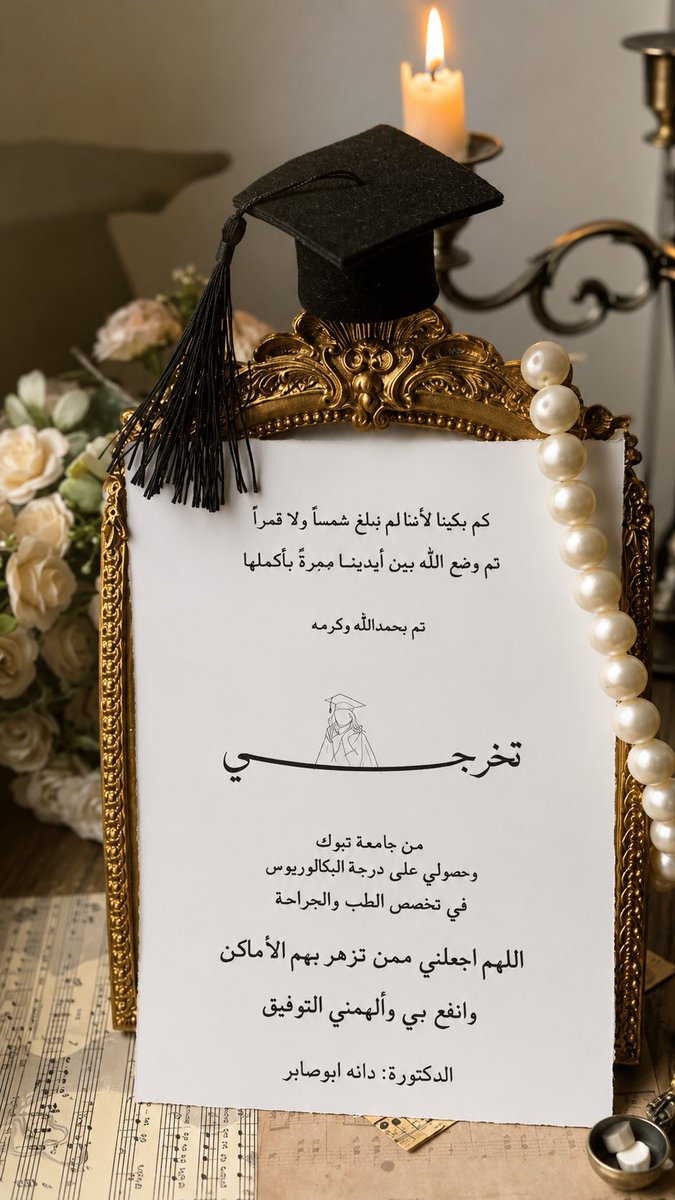 كم بكينا لأننا لم نبلغ شمساً ولا قمراً
ثم وضع الله بين أيدينا مجرةً بأكملها
تم بحمدالله وكرمه
تخرجي
من جامعة تبوك
وحصولي على درجة البكالوريوس
في تخصص الطب والجراحة
اللهم اجعلني ممن تزهر بهم الأماكن
وانفع بي وألهمني التوفيق
الدكتورة: دانه ابوصابر